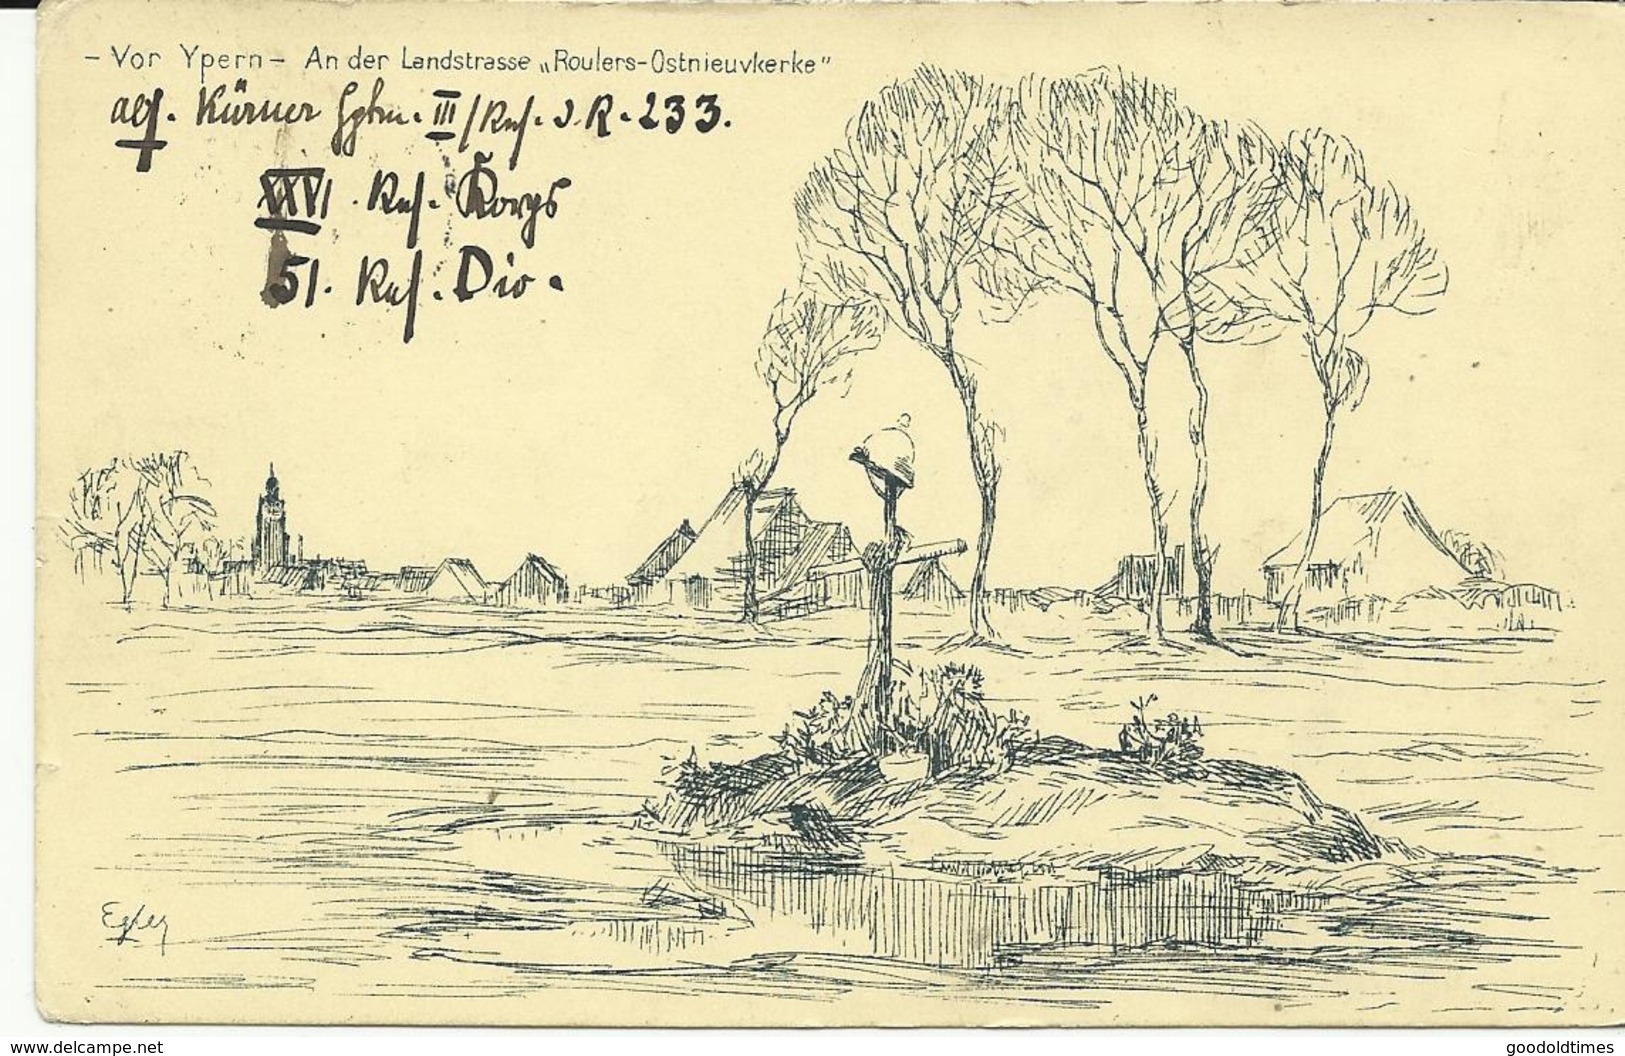 - Vor Ypern - An der Landstrasse „Roulers-Ostnieuvkerke"
abs. Körner Hptm. III/Res. J. R. 233.
XXVI. Res. Korps
51. Res. Div.
Egler
delcampe.net
goodoldtimes